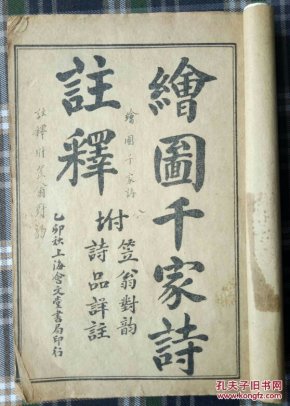 繪圖千家詩
註釋
坿
笠翁對韵
詩品詳註
乙卯秋上海會文堂書局印行
繪圖千家詩
註釋附笠翁對韵
孔夫子旧书网